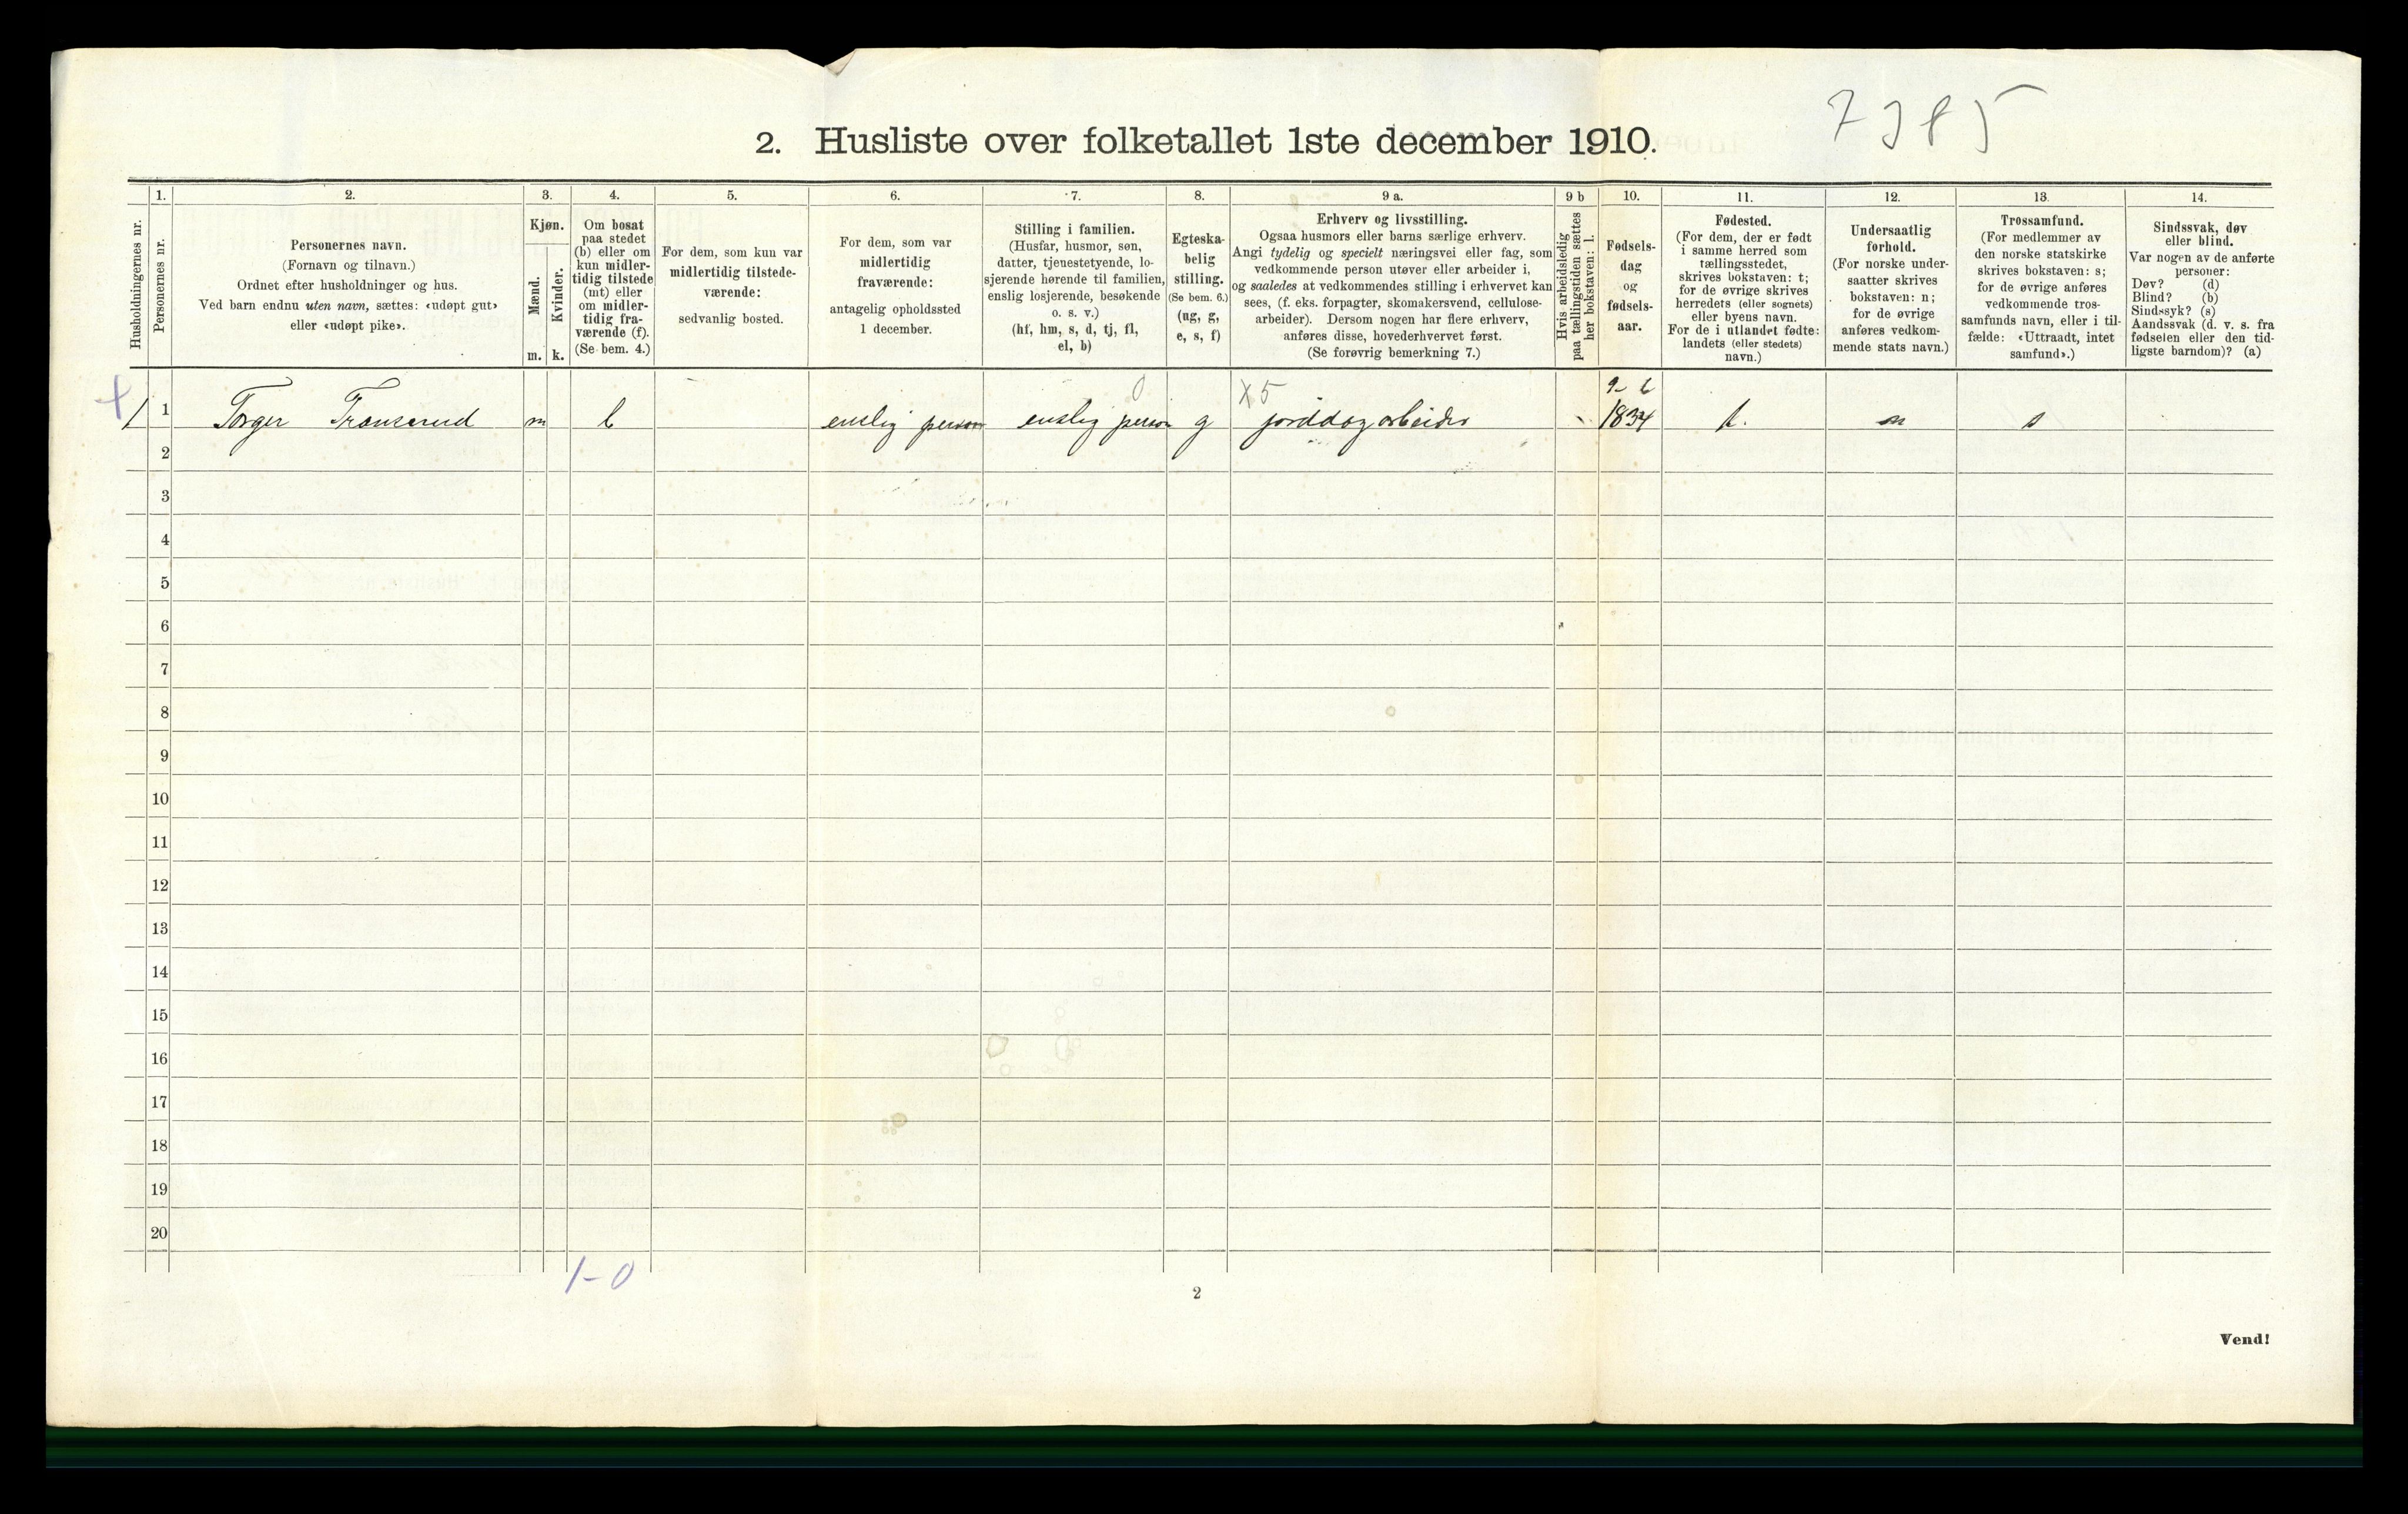 7385
2. Husliste over folketallet 1ste december 1910.
Husholdningernes nr.
1.
Personernes nr.
2.
Personernes navn.
(Fornavn og tilnavn.)
Ordnet efter husholdninger og hus.
Ved barn endnu uten navn, sættes: «udøpt gut»
eller «udøpt pike».
3.
Kjøn.
Mænd.
Kvinder.
m.
k.
4.
Om bosat
paa stedet
(b) eller om
kun midler-
tidig tilstede
(mt) eller
om midler-
tidig fra-
værende (f).
(Se bem. 4.)
5.
For dem, som kun var
midlertidig tilstede-
værende:
sedvanlig bosted.
6.
For dem, som var
midlertidig
fraværende:
antagelig opholdssted
1 december.
7.
Stilling i familien.
(Husfar, husmor, søn,
datter, tjenestetyende, lo-
sjerende hørende til familien,
enslig losjerende, besøkende
o. s. v.)
(hf, hm, s, d, tj, fl,
el, b)
8.
Egteska-
belig
stilling.
(Se bem. 6.)
(ug, g,
e, s, f)
9 a.
Erhverv og livsstilling.
Ogsaa husmors eller barns særlige erhverv.
Angi tydelig og specielt næringsvei eller fag, som
vedkommende person utøver eller arbeider i,
og saaledes at vedkommendes stilling i erhvervet kan
sees, (f. eks. forpagter, skomakersvend, cellulose-
arbeider). Dersom nogen har flere erhverv,
anføres disse, hovederhvervet først.
(Se forøvrig bemerkning 7.)
9 b
Hvis arbeidsledig
paa tællingstiden sættes
her bokstaven: l.
10.
Fødsels-
dag
og
fødsels-
aar.
11.
Fødested.
(For dem, der er født
i samme herred som
tællingsstedet,
skrives bokstaven: t;
for de øvrige skrives
herredets (eller sognets)
eller byens navn.
For de i utlandet fødte:
landets (eller stedets)
navn.)
12.
Undersaatlig
forhold.
(For norske under-
saatter skrives
bokstaven: n;
for de øvrige
anføres vedkom-
mende stats navn.)
13.
Trossamfund.
(For medlemmer av
den norske statskirke
skrives bokstaven: s;
for de øvrige anføres
vedkommende tros-
samfunds navn, eller i til-
fælde: «Uttraadt, intet
samfund».)
14.
Sindssvak, døv
eller blind.
Var nogen av de anførte
personer:
Døv? (d)
Blind? (b)
Sindssyk? (s)
Aandssvak (d. v. s. fra
fødselen eller den tid-
ligste barndom)? (a)
0 X5 9-6
1 1 Torger m b enslig person enslig person g jorddagarbeider 1834 t. n s
2
3
4
5
6
7
8
9
10
11
12
13
14
15
16
17
18
19
20
1-0
2
Vend!